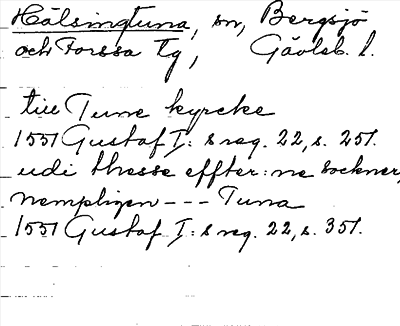 Hälsingtuna, sn, Bergsjö
och Forssa tg, Gävleb. l.
till Tune kyrcke
1551 Gustaf I:s reg. 22, s. 251.
udi thesse effter:ne sockner,
nempligen --- Tuna
1551 Gustaf I:s reg. 22, s. 351.